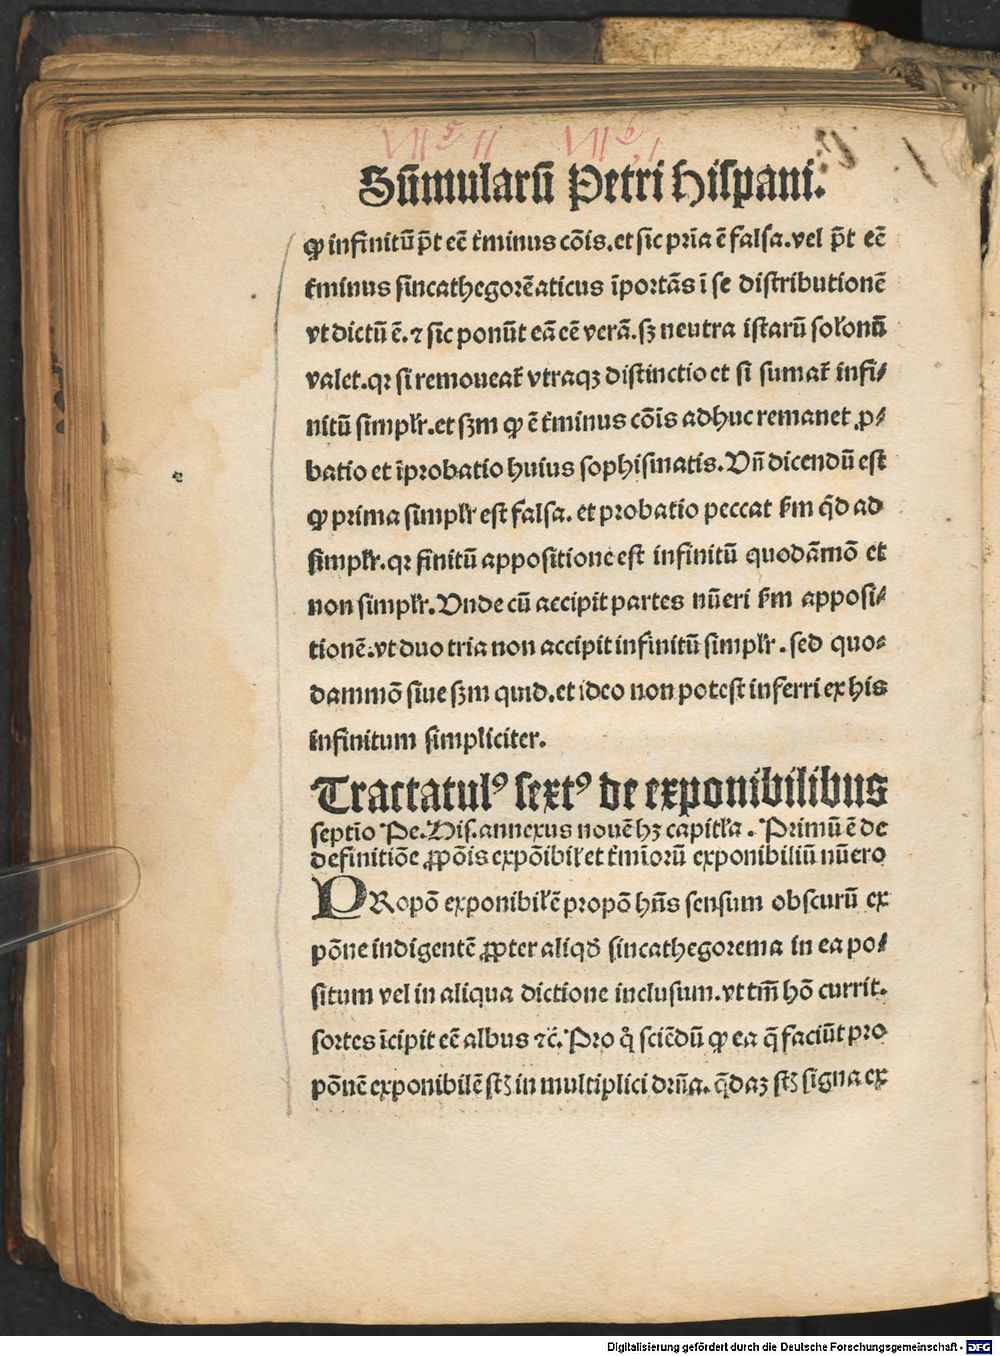 VII 5 II VII 6, 1
Sūmularū Petri Hiſpani.
ꝙ infinitū p̄t eē t̄minus cōis. et ſic pria ē falſa. vel p̄t eē
t̄minus ſincathegorēaticus īportās ī ſe diſtributionē
vt dictū ē. ⁊ ſic ponūt eā eē verā. sꝫ neutra iſtarū ſolonū
valet. qꝛ ſi remoueat̄ vtraqꝫ diſtinctio et ſi ſumat̄ infi⸗
nitū ſimplr̄. et ſꝫm ꝙ ē t̄minus cōis adhuc remanet ꝓ⸗
batio et īprobatio huius ſophiſmatis. Vn̄ dicendū eſt
ꝙ prima ſimplr̄ eſt falſa. et probatio peccat ẜm q̄d ad
ſimplr̄. qꝛ finitū appoſitione eſt infinitū quodāmō et
non ſimplr̄. Vnde cū accipit partes nūeri ẜm appoſi⸗
tionē. vt duo tria non accipit infinitū ſimplr̄. ſed quo⸗
dammō ſiue ſꝫm quid. et ideo non poteſt inferri ex his
infinitum ſimpliciter.
Tractatulꝰ ſextꝰ de exponibilibus
ſeptīo Pe. Hiſ. annexus nouē hꝫ capitl̄a. Primū ē de
definitiōe ꝓpōis expōibil̄ et t̄mīorū exponibiliū nūero
PRopō exponibil̄ ē propō hn̄s ſenſum obſcurū ex
pōne indigentē ꝓpter aliqd̄ ſincathegorema in ea po⸗
ſitum vel in aliqua dictione incluſum. vt tm̄ hō currit.
ſortes īcipit eē albus ⁊c̄. Pro q̊ ſciēdū ꝙ ea q̄ faciūt pro
pōnē exponibilē ſt̄ in multiplici drn̄a. q̄daꝫ ſt̄ ſigna ex
Digitalisierung gefördert durch die Deutsche Forschungsgemeinschaft - DFG